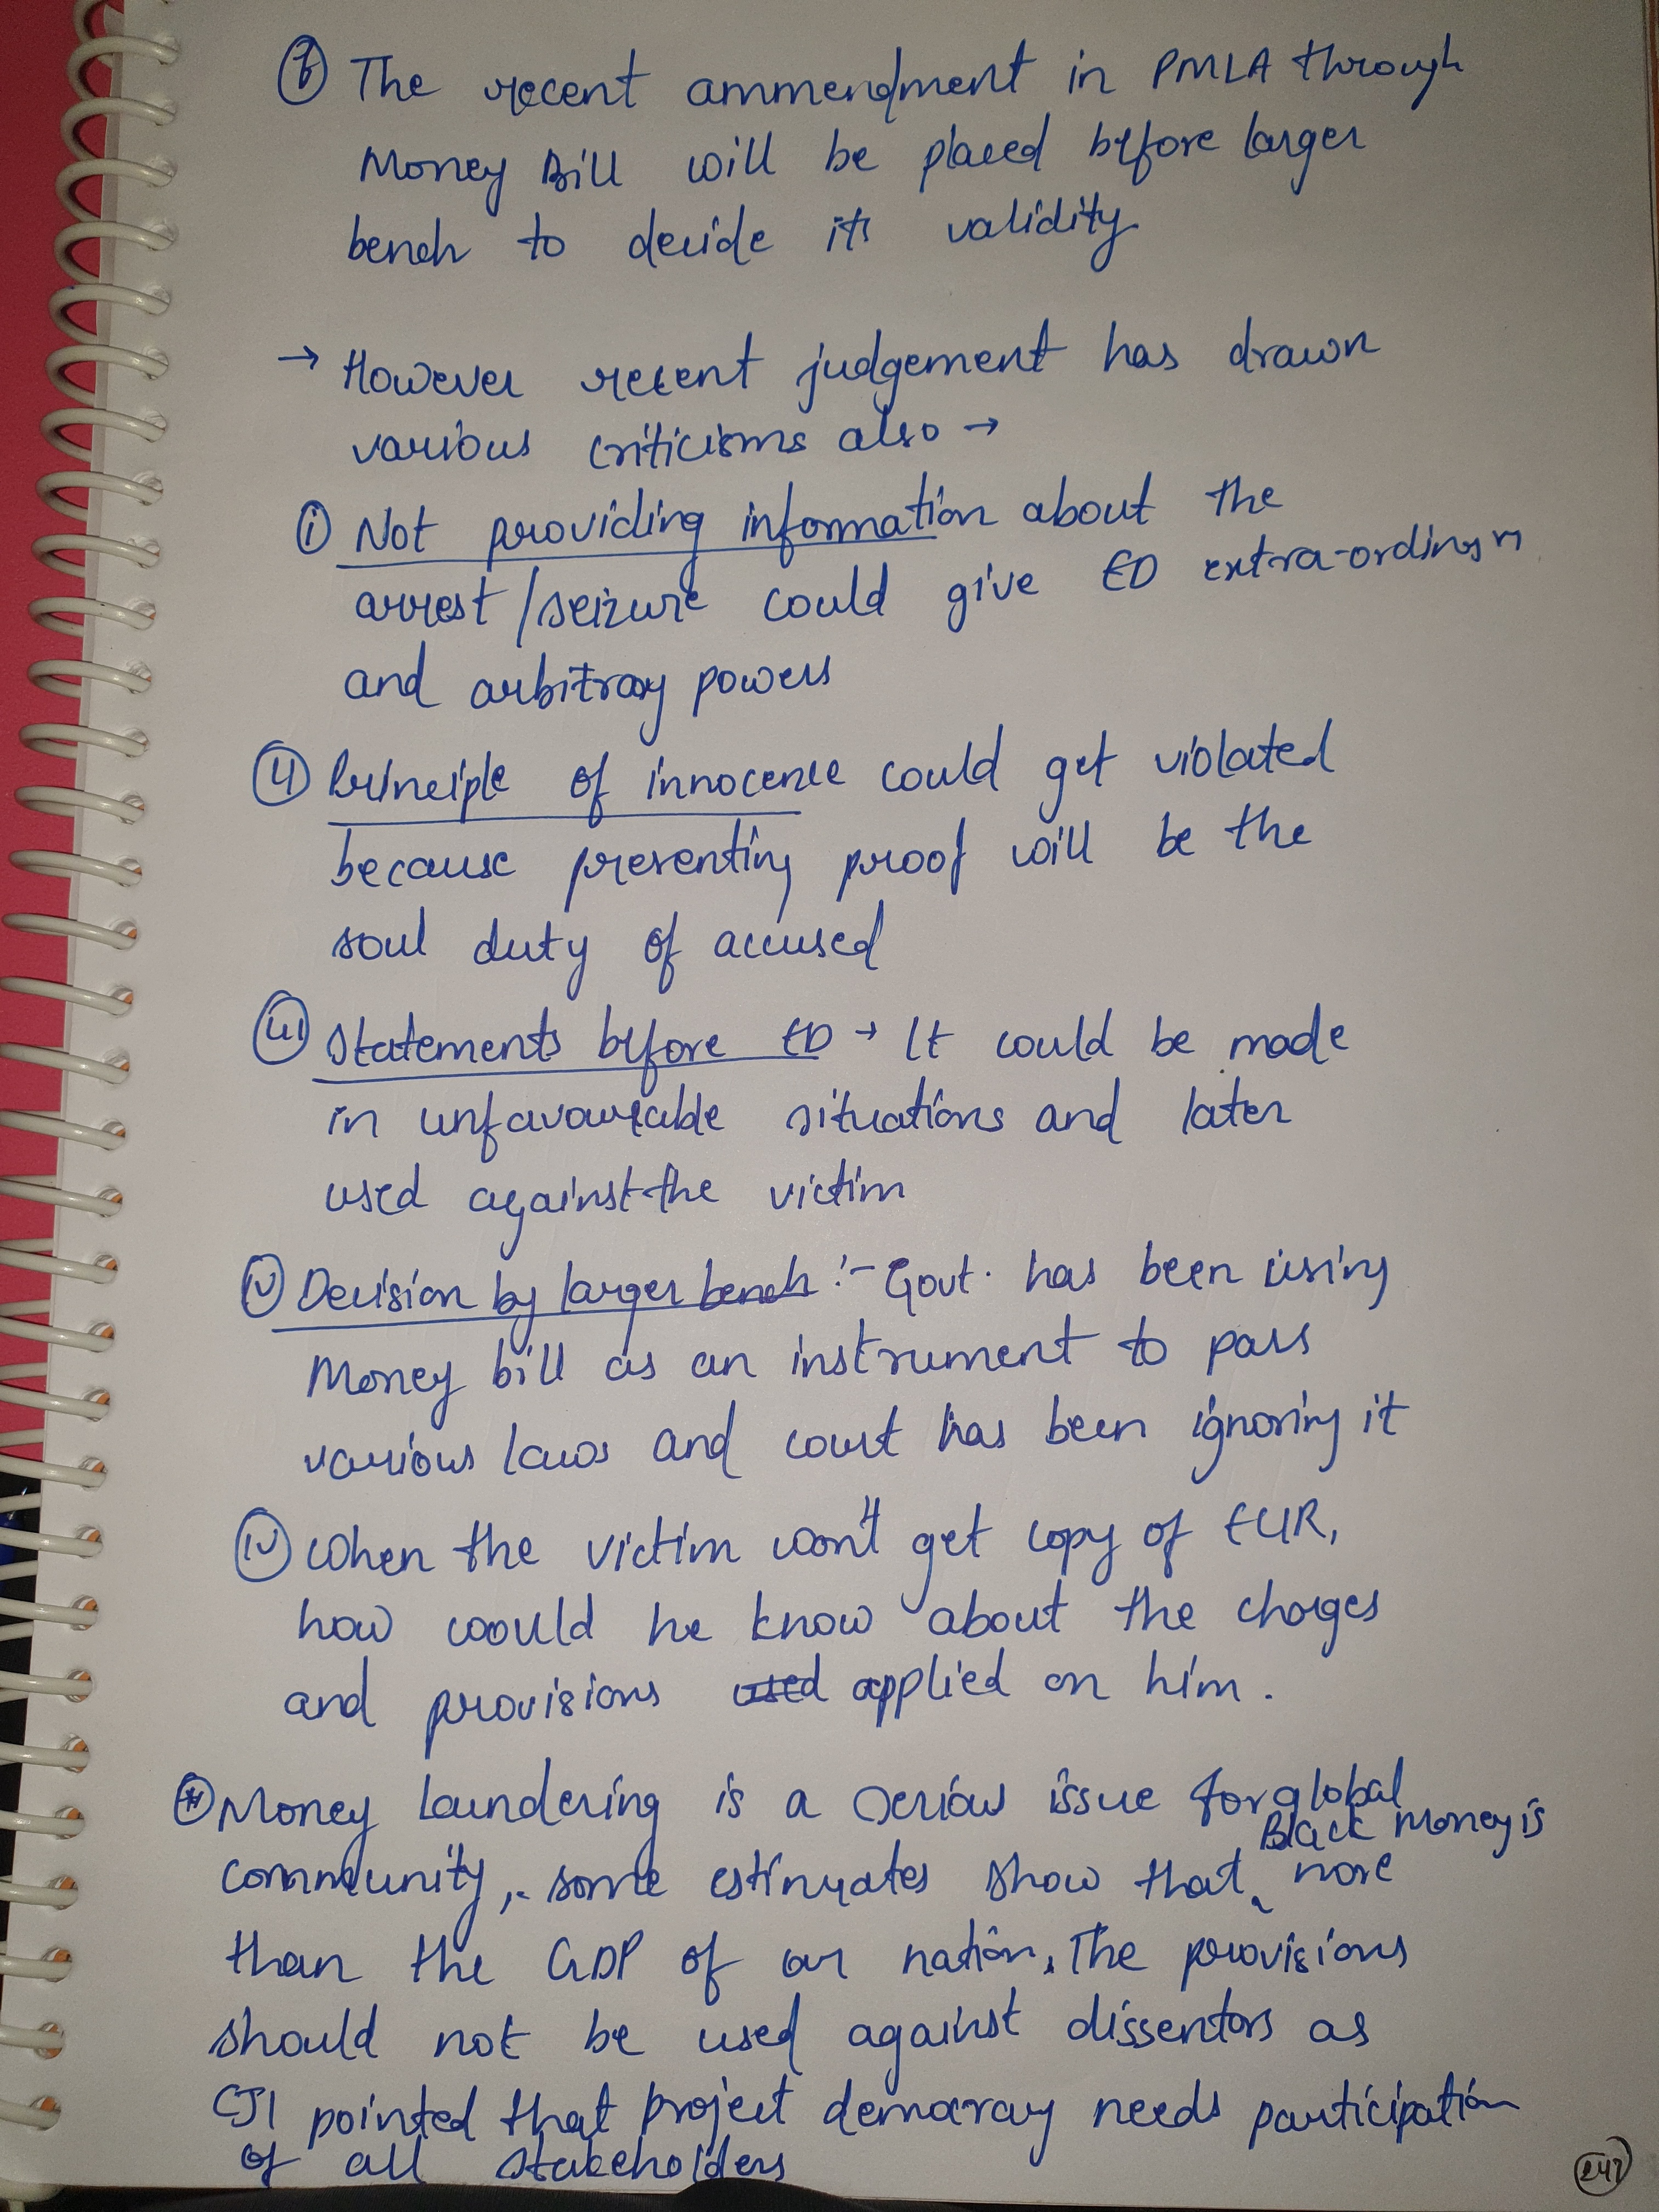 The recent ammendment in PMLA through
Money Bill will be placed before larger
bench to decide its validity
→ However recent judgement has drawn
various criticisms also →
(i) Not providing information about the
arrest/seizure could give ED extra-ordinary
and arbitray powers
(ii) Principle of innocence could get violated
because presenting proof will be the
soul duty of accused
(iii) Statements before ED → It could be made
in unfavourable situations and later
used against the victim
(iv) Decision by larger bench :- Govt. has been using
Money bill as an instrument to pass
various laws and court has been ignoring it
(iv) When the victim won't get copy of ECIR,
how would he know about the charges
and provisions used applied on him.
Money laundering is a serious issue for global
community, some estimates show that Black Money is more
than the GDP of our nation. The provisions
should not be used against dissentors as
CJI pointed that project democracy needs participation
of all stakeholders
247